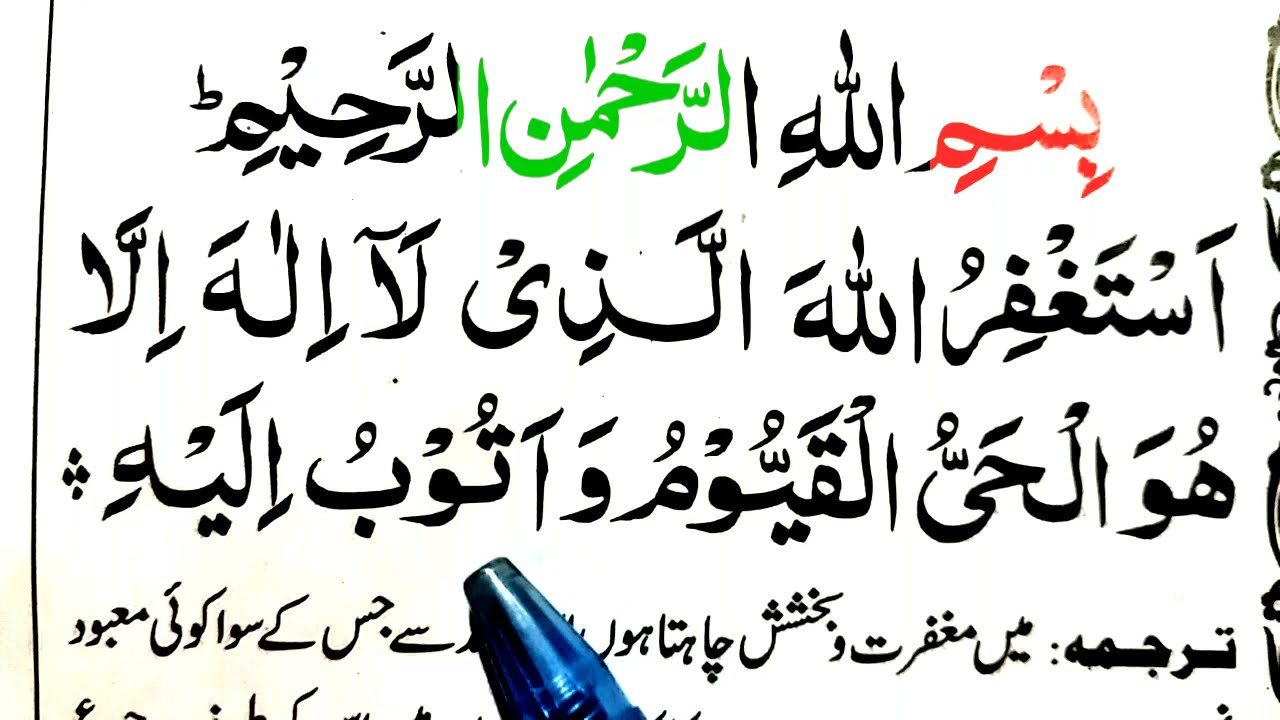 بِسْمِ اللهِ الرَّحْمٰنِ الرَّحِيْمِ ؕ
اَسْتَغْفِرُ اللهَ الَّذِىْ لَآ اِلٰهَ اِلَّا
هُوَ الْحَىُّ الْقَيُّوْمُ وَ اَتُوْبُ اِلَيْهِ
ترجمه: میں مغفرت و بخشش چاہتا ہوں سے جس کے سوا کوئی معبود